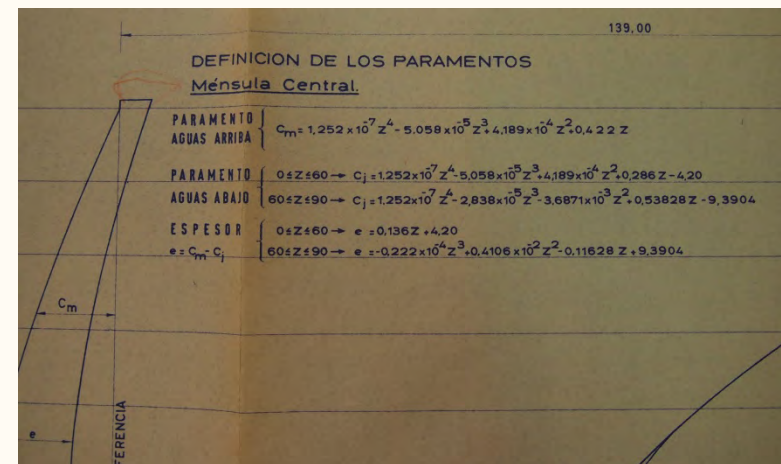 139,00
DEFINICION DE LOS PARAMENTOS
Ménsula Central.
PARAMENTO
AGUAS ARRIBA
Cm = 1,252 x 10^-7 Z^4 - 5.058 x 10^-5 Z^3 + 4,189 x 10^-4 Z^2 + 0,422 Z
PARAMENTO
AGUAS ABAJO
0≤Z≤60 → Cj = 1,252x10^-7 Z^4 - 5,058x10^-5 Z^3 + 4,189x10^-4 Z^2 + 0,286 Z - 4,20
60≤Z≤90 → Cj = 1,252x10^-7 Z^4 - 2,838x10^-5 Z^3 - 3,6871x10^-3 Z^2 + 0,53828 Z - 9,3904
ESPESOR
e = Cm - Cj
0≤Z≤60 → e = 0,136 Z + 4,20
60≤Z≤90 → e = -0,222x10^-4 Z^3 + 0,4106x10^-2 Z^2 - 0,11628 Z + 9,3904
Cm
e
FERENCIA